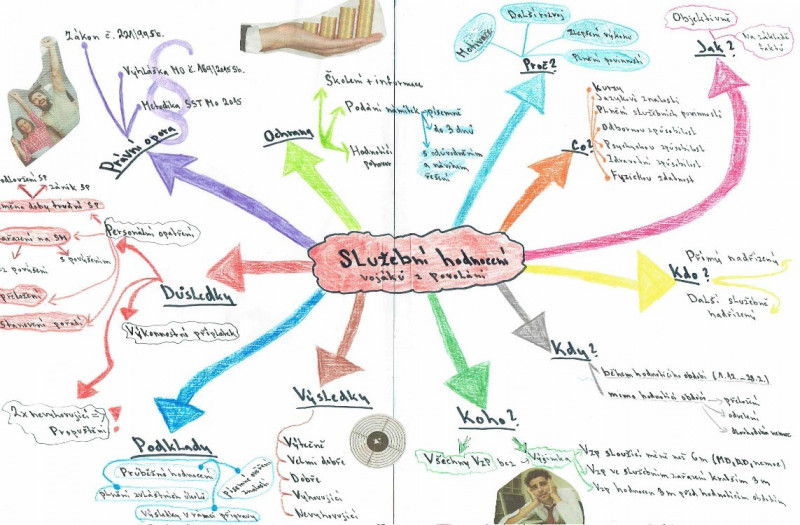 Služební hodnocení
vojáků z povolání
Zákon č. 221/99 Sb.
Vyhláška MO č. 189/2015 Sb.
Metodika SST MO 2015
Právní opora
Ochrana
Školení + informace
Podání námitek
písemně
do 3 dnů
s odůvodněním
a návrhem
řešení
Hodnotící
pohovor
Proč?
Motivace
Další rozvoj
Zlepšení výkonu
Plnění povinností
Co?
Kurzy
Jazykové znalosti
Plnění služebních povinností
Odbornou způsobilost
Psychickou způsobilost
Zdravotní způsobilost
Fyzickou zdatnost
Jak?
Objektivně
Na základě
faktů
Kdo?
Přímý nadřízený
Další služebně
nadřízení
Kdy?
během hodnotícího období
mimo hodnotící období
přeložení
odvolání
dlouhodobá nemoc
Koho?
Všechny VZP
bez
Výjimka
VZP sloužící méně než 6m
VZP ve služebním zařazení kratším 3m
VZP hodnocen 3m před hodnotícím obdobím
Výsledky
Výtečně
Velmi dobře
Dobře
Vyhovující
Nevyhovující
Podklady
Průběžné hodnocení
Plnění zvláštních úkolů
Výsledky v rámci přípravy
Důsledky
Personální opatření
Výkonnostní příplatek
2x nevyhovující =>
Propuštění
zánik SP
změna doby trvání SP
zařazení na SM
s povýšením
přeložení
Stanovení pořadí